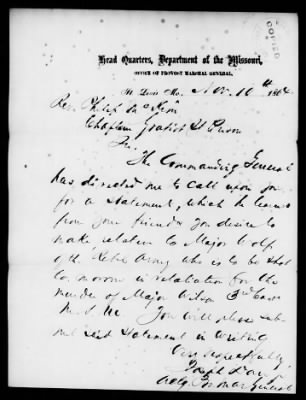 COPIED
Head Quarters, Department of the Missouri,
OFFICE OF PROVOST MARSHAL GENERAL,
St. Louis Mo., Nov. 10th 1864.
Rev. Philip
Chaplain Gratiot St Prison
The Commanding General
has directed me to call upon you
for a statement, which he learns
from your friends you desire to
make relation to Major Wolf
of the Rebel Army who is to be shot
tomorrow in retaliation for the
murder of Major Wilson 3rd Cav
M. S. M. You will please sub-
mit said statement in writing
Very respectfully
Joseph Darr
actg. Pro Mar General